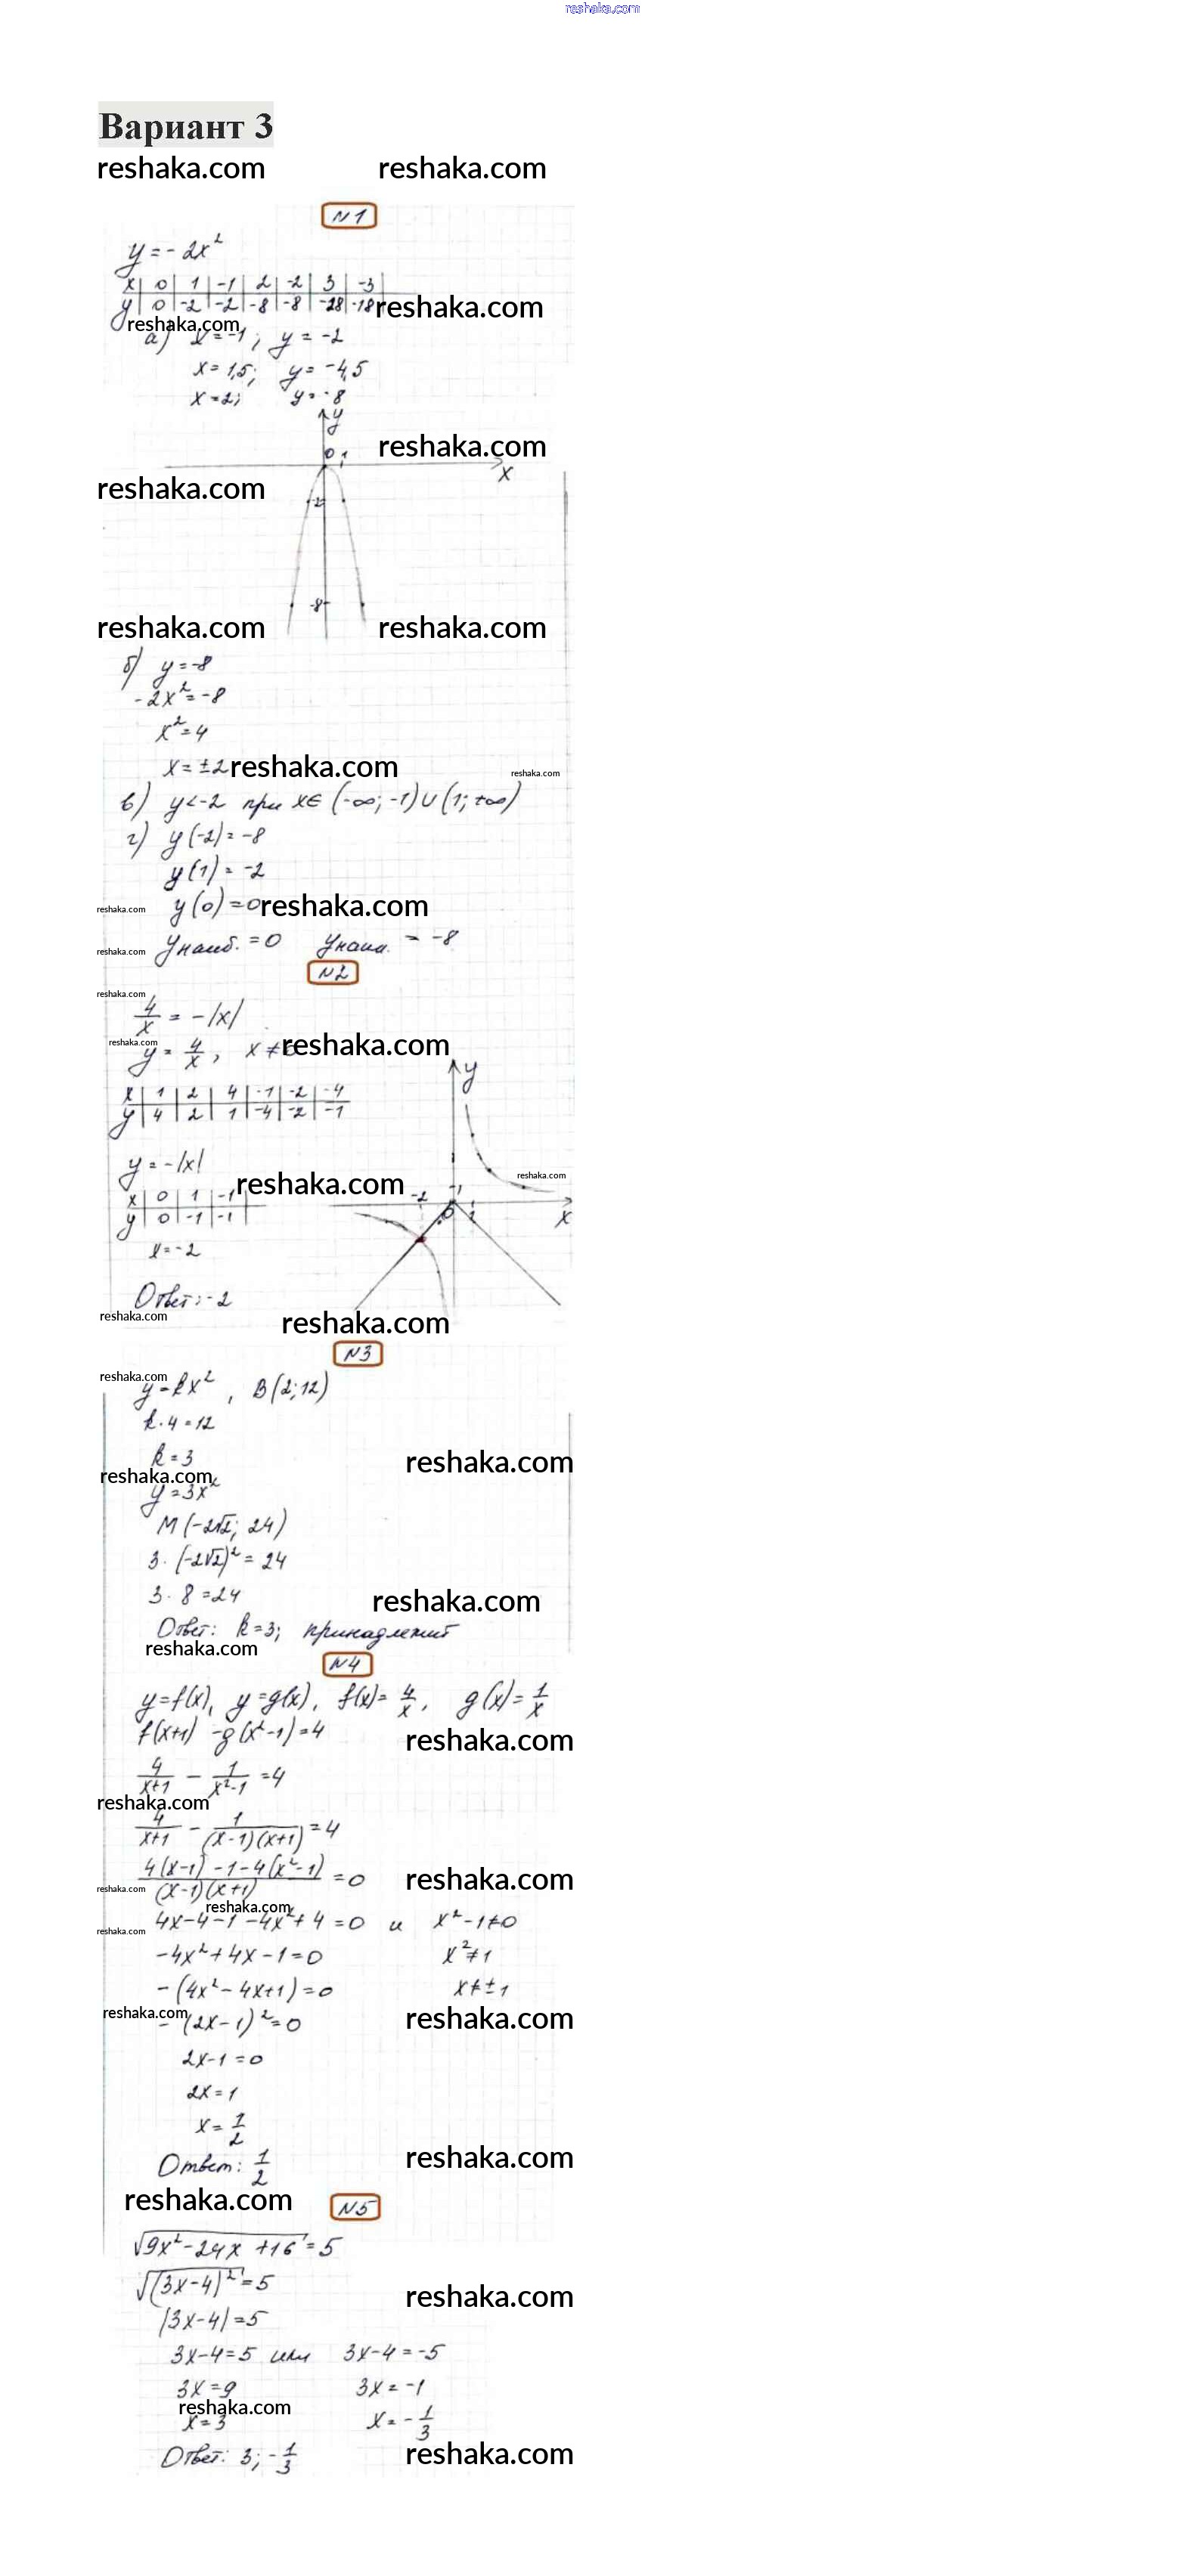 reshaka.com
Вариант 3
reshaka.com reshaka.com
N1
y = -2x²
x | 0 | 1 | -1 | 2 | -2 | 3 | -3
y | 0 | -2 | -2 | -8 | -8 | -18 | -18 reshaka.com
reshaka.com
а) x = -1; y = -2
x = 1,5; y = -4,5
x = 2; y = -8
y
reshaka.com
0 1
x
reshaka.com
-2
-8
reshaka.com reshaka.com
б) y = -8
-2x² = -8
x² = 4
x = ±2 reshaka.com
reshaka.com
в) y < -2 при x ∈ (-∞; -1) ∪ (1; +∞)
г) y(-2) = -8
y(1) = -2
reshaka.com y(0) = 0 reshaka.com
reshaka.com yнаиб. = 0 yнаим. = -8
N2
reshaka.com
4/x = -|x|
reshaka.com
y = 4/x, x ≠ 0 reshaka.com
y
x | 1 | 2 | 4 | -1 | -2 | -4
y | 4 | 2 | 1 | -4 | -2 | -1
y = -|x|
reshaka.com reshaka.com
x | 0 | 1 | -1
y | 0 | -1 | -1
-2 1 0 1 x
x = -2
Ответ: -2
reshaka.com reshaka.com
N3
reshaka.com
y = kx², B(2; 12)
k · 4 = 12
k = 3 reshaka.com
reshaka.com
y = 3x²
M(-2√2; 24)
3 · (-2√2)² = 24
3 · 8 = 24 reshaka.com
Ответ: k = 3; принадлежит
reshaka.com
N4
y = f(x), y = g(x), f(x) = 4/x, g(x) = 1/x
f(x+1) - g(x²-1) = 4 reshaka.com
4/(x+1) - 1/(x²-1) = 4
reshaka.com
4/(x+1) - 1/((x-1)(x+1)) = 4
(4(x-1) - 1 - 4(x²-1))/((x-1)(x+1)) = 0 reshaka.com
reshaka.com reshaka.com
reshaka.com 4x - 4 - 1 - 4x² + 4 = 0 и x² - 1 ≠ 0
-4x² + 4x - 1 = 0 x² ≠ 1
-(4x² - 4x + 1) = 0 x ≠ ±1
reshaka.com reshaka.com
-(2x - 1)² = 0
2x - 1 = 0
2x = 1
x = 1/2
Ответ: 1/2 reshaka.com
reshaka.com N5
√(9x² - 24x + 16) = 5
√((3x - 4)²) = 5 reshaka.com
|3x - 4| = 5
3x - 4 = 5 или 3x - 4 = -5
3x = 9 3x = -1
reshaka.com
x = 3 x = -1/3
Ответ: 3; -1/3 reshaka.com